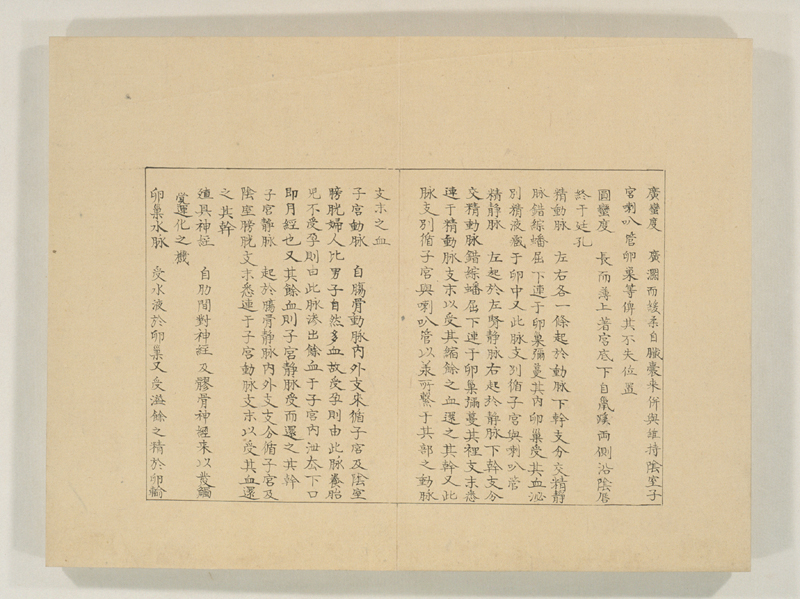 廣蠻度　廣濶而緩柔自臓囊来併與維持陰室子
宮喇叭管卵巢等俾其不失位置
圓蠻度　長而薄上著宮底下自鼠蹊両側沿陰唇
終于廷孔
精動脉　左右各一條起於動脉下幹支分交精静
脉錯綜蟠屈下連于卵巢彌蔓其内卵巢受其血泌
別精液藏于卵中又此脉支別循子宮與喇叭管
精静脉　左起於左腎静脉右起於静脉下幹支分
交精動脉錯綜蟠屈下連于卵巢彌蔓其裡支末悉
連于精動脉支末以受其縮餘之血還之其幹又此
脉支別循子宮與喇叭管以兼所繋于其部之動脉
支末之血
子宮動脉　自膓骨動脉内外支来循子宮及陰室
膀胱婦人比男子自然多血故受孕則由此脉養胎
児不受孕則由此脉滲出餘血于子宮内泄于下口
即月経也又其餘血則子宮静脉受而還之其幹
子宮静脉　起於膓骨静脉内外支支分循子宮及
陰室膀胱支末悉連于子宮動脉支末以受其血還
之其幹
殖具神経　自肋間對神経及髎骨神経来以發觸
覚運化之機
卵巢水脉　受水液於卵巢又受滋餘之精於卵輸